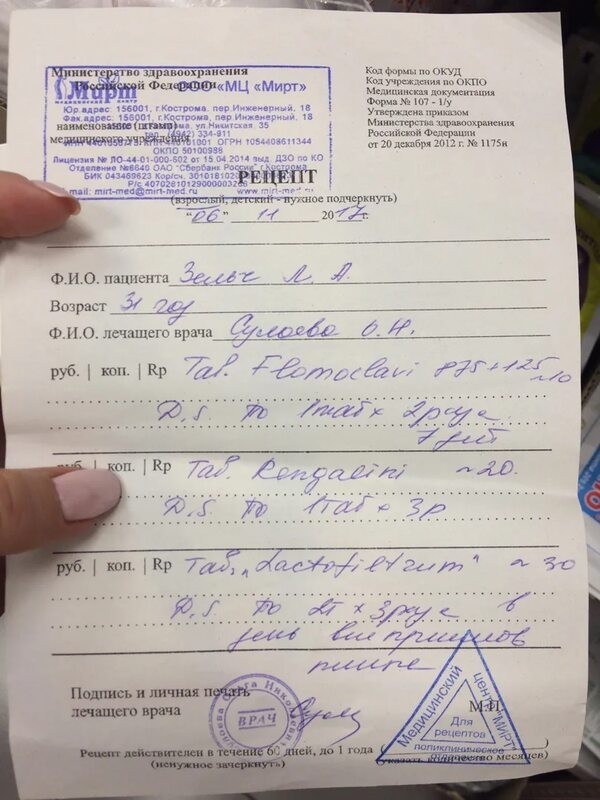 Министерство здравоохранения
Российской Федерации
Мирт
медицинский центр
ООО «МЦ «Мирт»
Юр.адрес: 156001, г.Кострома, пер.Инженерный, 18
Фак.адрес: 156001, г.Кострома, пер.Инженерный, 18
наименование (штамп)
ул.Никитская, 35
медицинского учреждения
ОГРН 1054408611344
ОКПО 50100988
Лицензия № ЛО-44-01-000-602 от 15.04.2014 выд. ДЗО по КО
Отделение №8640 ОАО "Сбербанк России" г.Кострома
БИК 043469623
e-mail: mirt-med@mirt-med.ru www.mirt-med.ru
Код формы по ОКУД
Код учреждения по ОКПО
Медицинская документация
Форма № 107 - 1/у
Утверждена приказом
Министерства здравоохранения
Российской Федерации
от 20 декабря 2012 г. № 1175н
РЕЦЕПТ
(взрослый, детский - нужное подчеркнуть)
"06" 11 2017г.
Ф.И.О. пациента Л. А.
Возраст 31 год
Ф.И.О. лечащего врача О.Н.
руб. | коп. | Rp Таб. Flemoclavi 875+125
D.S. По 1таб x 2раза
7 дней
руб. | коп. | Rp Таб. Rengalini ~20.
D.S. По 1таб x 3р
руб. | коп. | Rp Таб. "Lactofiltrum" ~ 30
D.S. По 2т x 3раза в
день вне приемов
пищи
Подпись и личная печать
лечащего врача
Ольга Николаевна
ВРАЧ
М.П.
Медицинский центр "МИРТ"
Для рецептов
поликлиническое
Рецепт действителен в течение 60 дней, до 1 года (
)
(ненужное зачеркнуть)
(указать количество месяцев)